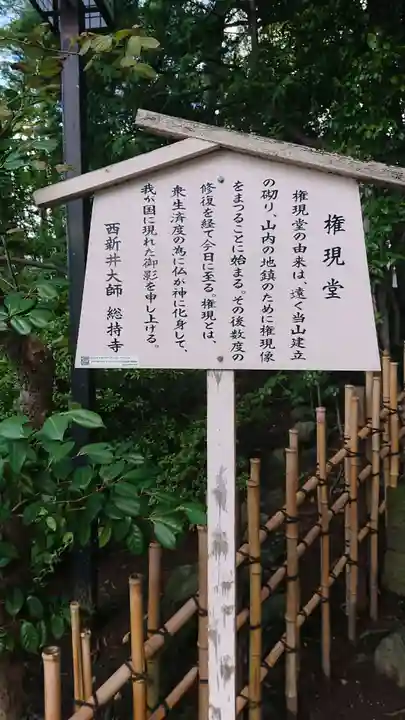 権現堂
権現堂の由来は、遠く当山建立
の砌り、山内の地鎮のために権現像
をまつることに始まる。その後数度の
修復を経て今日に至る。権現とは、
衆生済度の為に仏が神に化身して、
我が国に現れた御影を申し上げる。
西新井大師 総持寺